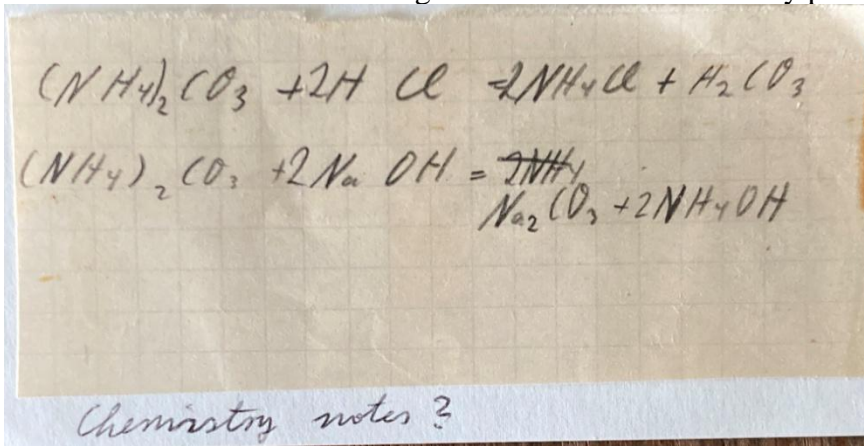 (NH₄)₂CO₃ + 2HCl = 2NH₄Cl + H₂CO₃
(NH₄)₂CO₃ + 2NaOH = 2NH₄
Na₂CO₃ + 2NH₄OH
Chemistry notes?